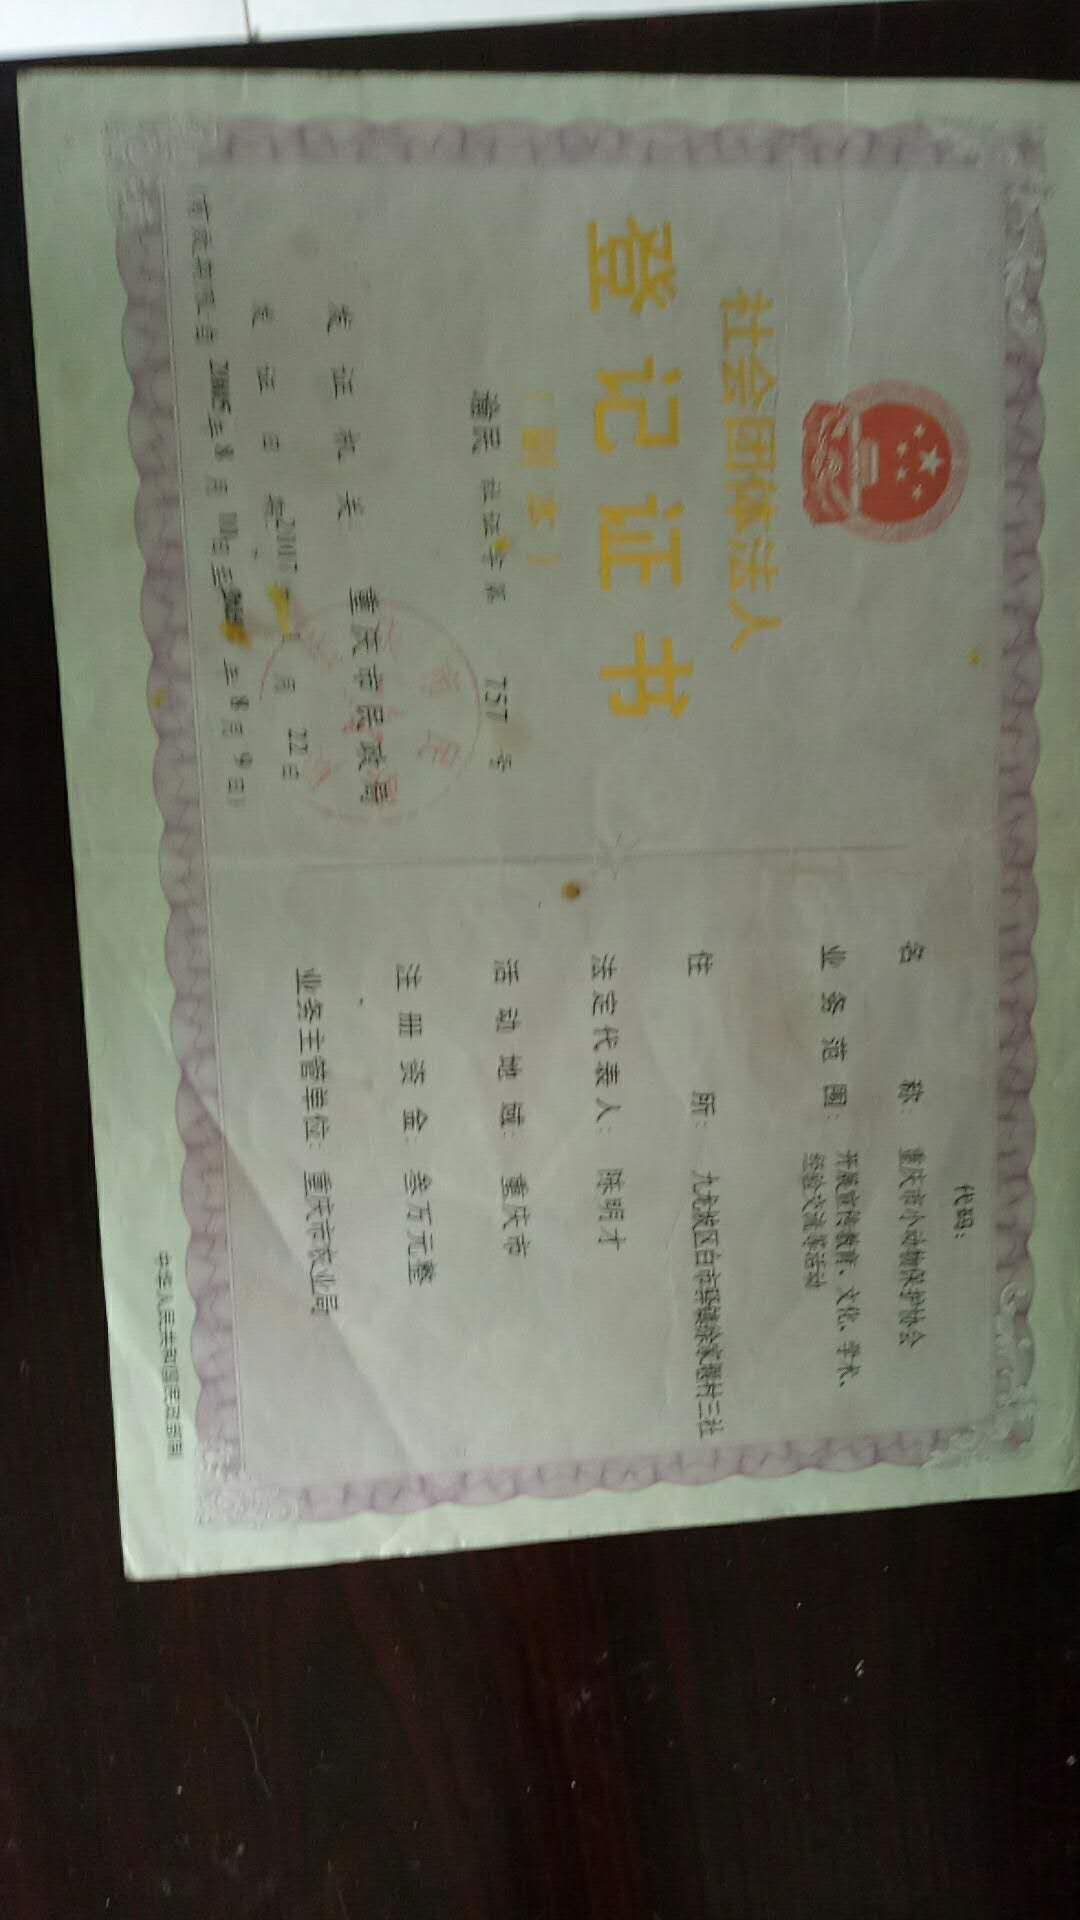 社会团体法人
登记证书
(副本)
渝民 社证字第 757 号
发证机关 重庆市民政局
发证日期 月 22 日
有效期限自 2005 年 8 月 日至 年 8 月 9 日
代码:
名称: 重庆市小动物保护协会
业务范围: 开展宣传教育、文化、学术、
经验交流等活动
住所: 九龙坡区白市驿镇涂家堰村三社
法定代表人: 陈明才
活动地域: 重庆市
注册资金: 叁万元整
业务主管单位: 重庆市农业局
中华人民共和国民政部制